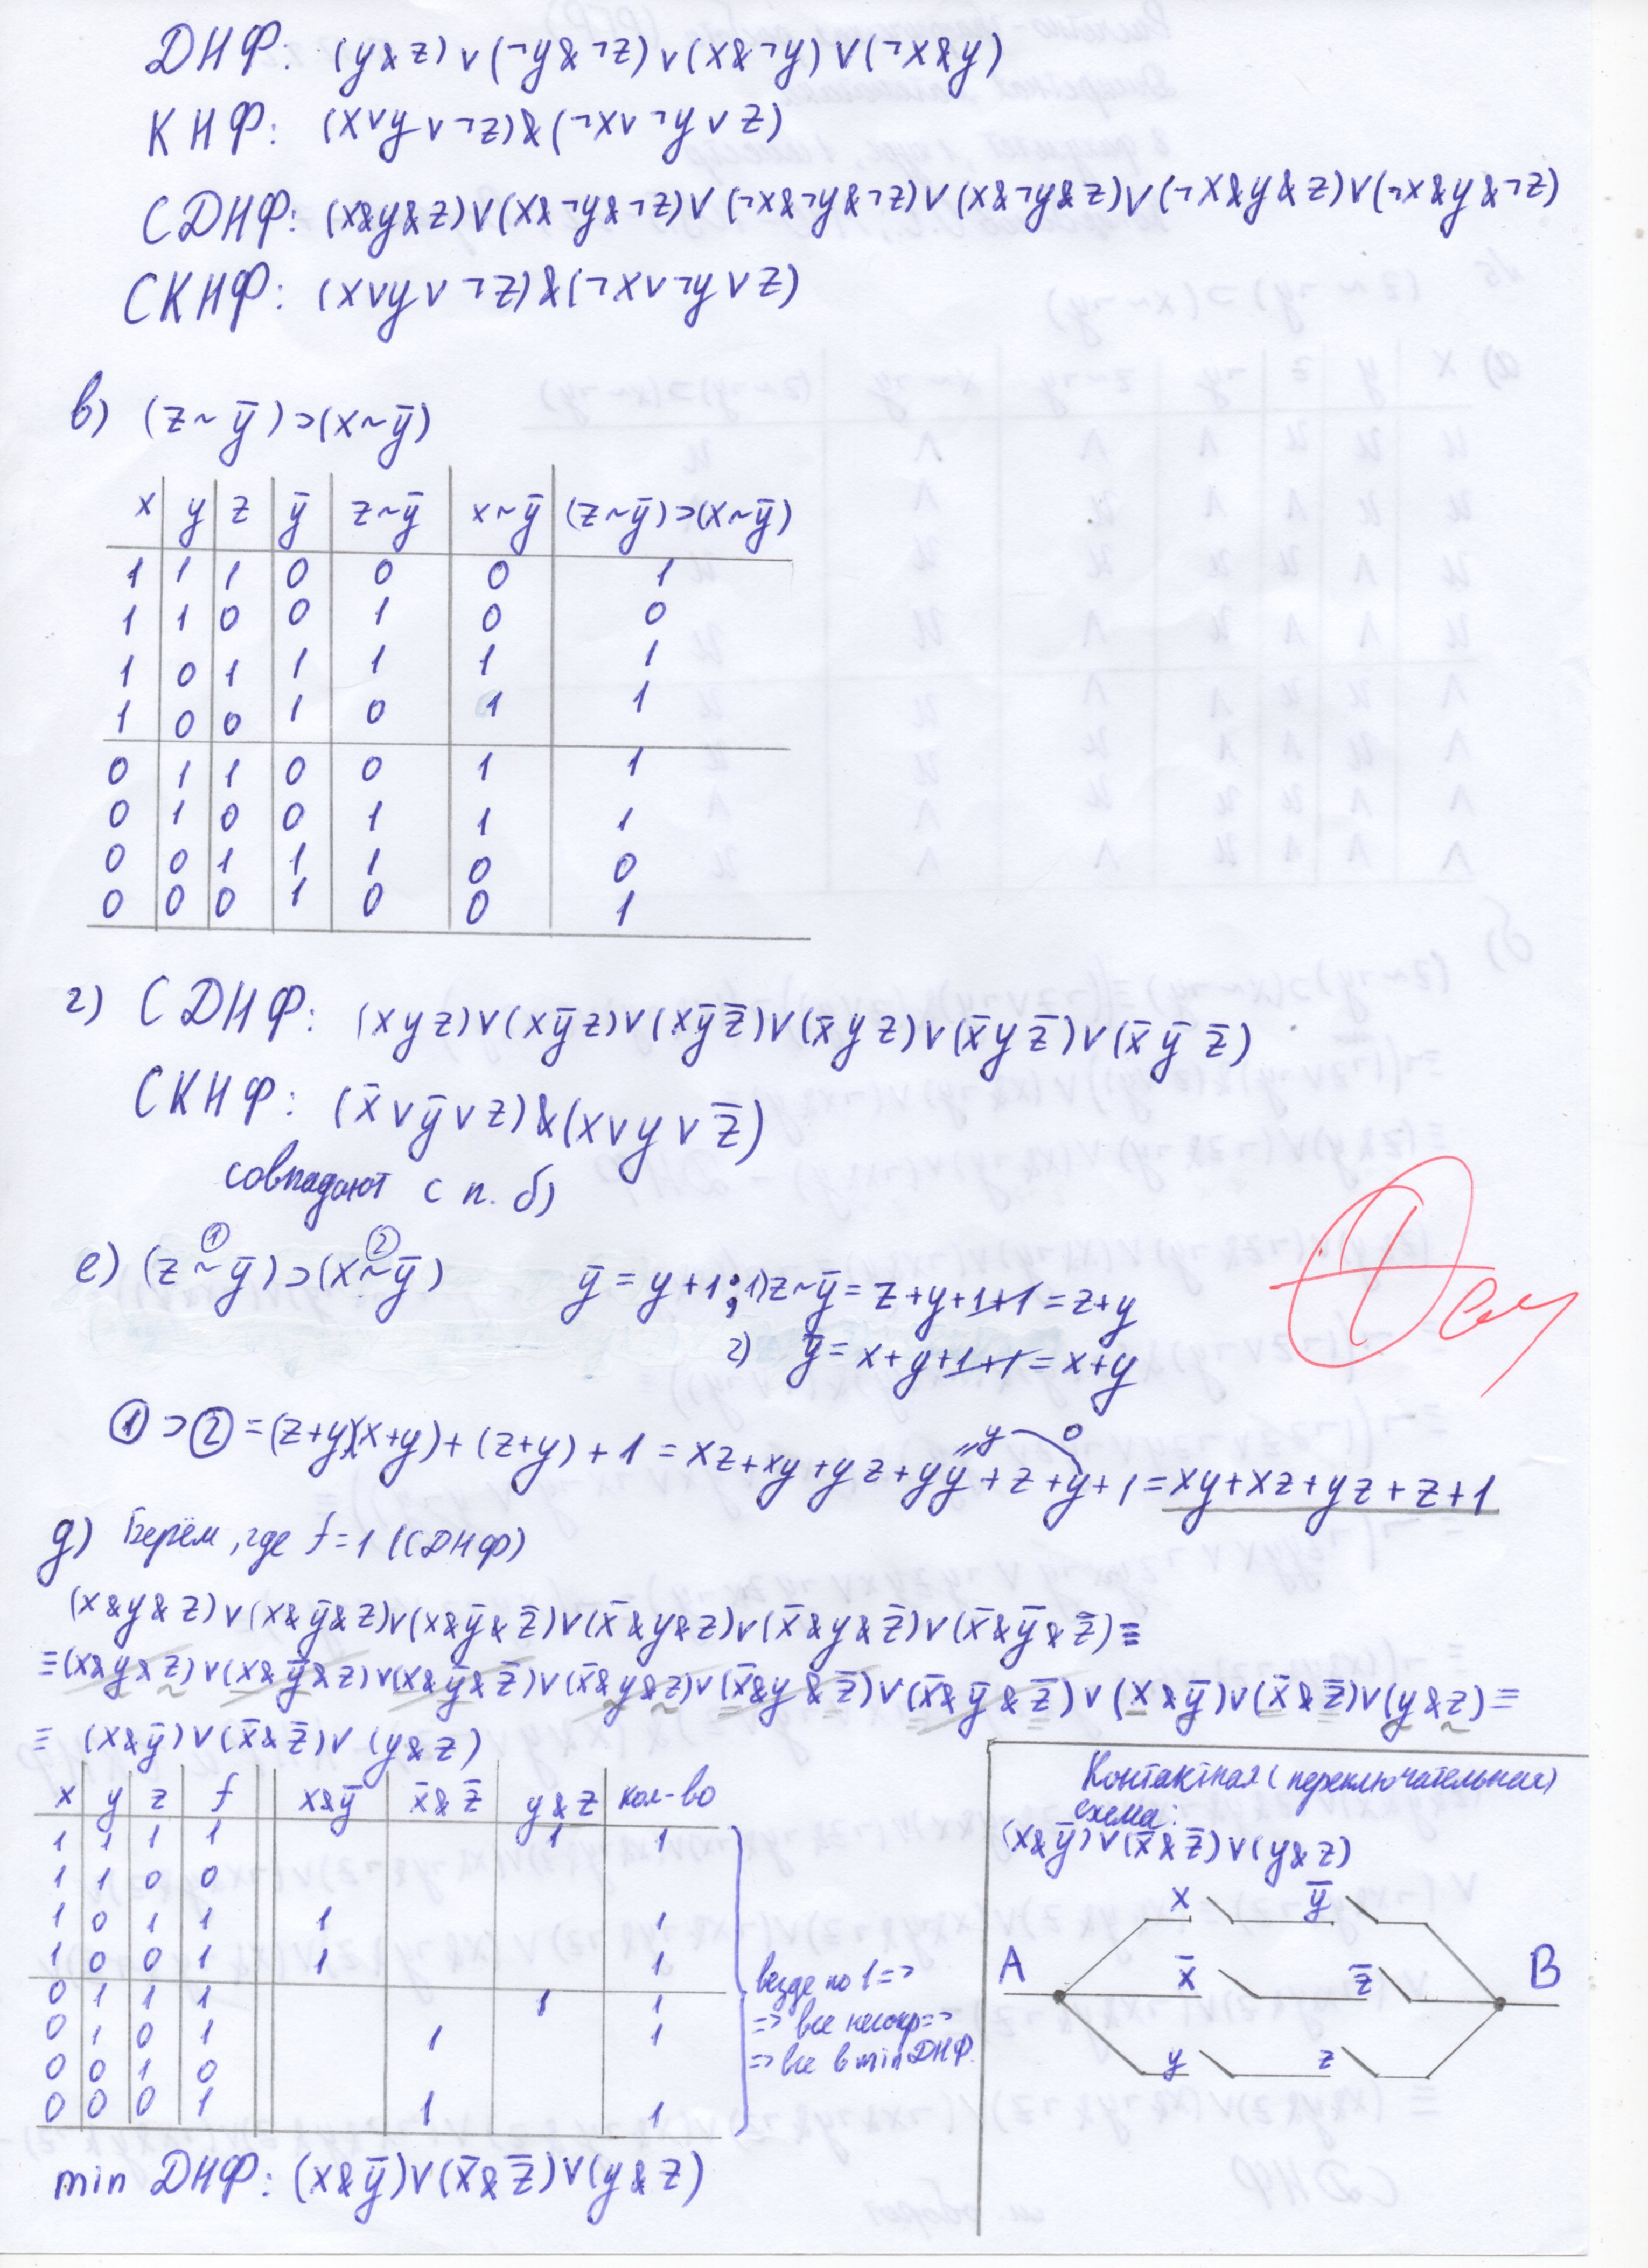 ДНФ: (y&z)∨(¬y&¬z)∨(x&¬y)∨(¬x&y)
КНФ: (x∨y∨¬z)&(¬x∨¬y∨z)
СДНФ: (x&y&z)∨(x&¬y&¬z)∨(¬x&¬y&¬z)∨(x&¬y&z)∨(¬x&y&z)∨(¬x&y&¬z)
СКНФ: (x∨y∨¬z)&(¬x∨¬y∨z)
в) (z~ȳ)⊃(x~ȳ)
x y z ȳ z~ȳ x~ȳ (z~ȳ)⊃(x~ȳ)
1 1 1 0 0 0 1
1 1 0 0 1 0 0
1 0 1 1 1 1 1
1 0 0 1 0 1 1
0 1 1 0 0 1 1
0 1 0 0 1 1 1
0 0 1 1 1 0 0
0 0 0 1 0 0 1
г) СДНФ: (xyz)∨(xȳz)∨(xȳz̄)∨(x̄yz)∨(x̄yz̄)∨(x̄ȳz̄)
СКНФ: (x̄∨ȳ∨z)&(x∨y∨z̄)
совпадают с п. б)
е) (z ①~ ȳ)⊃(x ②~ ȳ) ȳ = y+1; 1) z~ȳ = z+y+1+1 = z+y
2) ȳ = x+y+1+1 = x+y
①⊃② = (z+y)(x+y)+(z+y)+1 = xz+xy+yz+yy+z+y+1 = xy+xz+yz+z+1
=y 0
д) Берём, где f=1 (СДНФ)
(x&y&z)∨(x&ȳ&z)∨(x&ȳ&z̄)∨(x̄&y&z)∨(x̄&y&z̄)∨(x̄&ȳ&z̄)≡
≡(x&y&z)∨(x&ȳ&z)∨(x&ȳ&z̄)∨(x̄&y&z)∨(x̄&y&z̄)∨(x̄&ȳ&z̄)∨(x&ȳ)∨(x̄&z̄)∨(y&z)≡
≡ (x&ȳ)∨(x̄&z̄)∨(y&z)
x y z f x&ȳ x̄&z̄ y&z кол-во
1 1 1 1 1 1
1 1 0 0
1 0 1 1 1 1
1 0 0 1 1 1
0 1 1 1 1 1
0 1 0 1 1 1
0 0 1 0
0 0 0 1 1 1
везде по 1 =>
=> все несокр =>
=> все в min ДНФ.
min ДНФ: (x&ȳ)∨(x̄&z̄)∨(y&z)
Контактная (переключательная)
схема:
(x&ȳ)∨(x̄&z̄)∨(y&z)
x ȳ
A x̄ z̄ B
y z